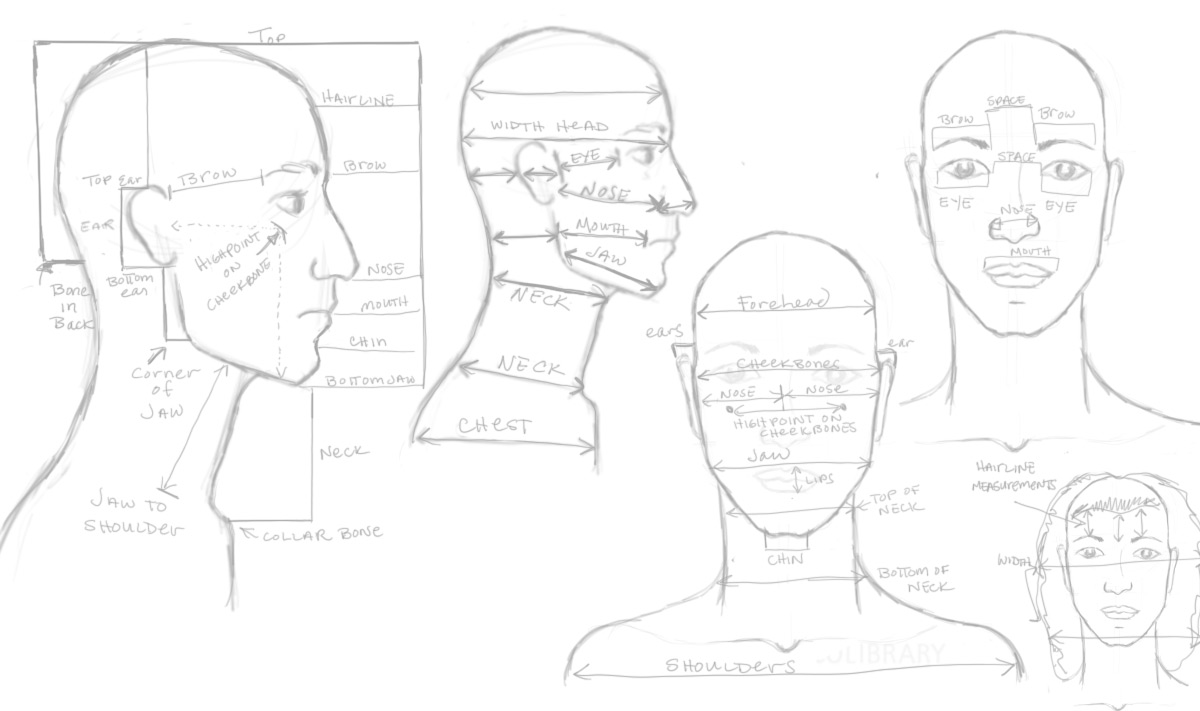 Top
HAIRLINE
BROW
Top Ear
BROW
EAR
HIGHPOINT
ON
CHEEKBONE
Bottom
ear
Bone
in
Back
NOSE
MOUTH
CHIN
BOTTOM JAW
Corner
of
JAW
Neck
JAW TO
SHOULDER
COLLAR BONE
WIDTH HEAD
EYE
NOSE
MOUTH
JAW
NECK
NECK
CHEST
Forehead
ears
ear
CHEEKBONES
NOSE
NOSE
HIGHPOINT ON
CHEEKBONES
Jaw
LIPS
TOP OF
NECK
CHIN
BOTTOM OF
NECK
SHOULDERS
LIBRARY
SPACE
BROW
BROW
SPACE
EYE
EYE
NOSE
MOUTH
HAIRLINE
MEASUREMENTS
WIDTH